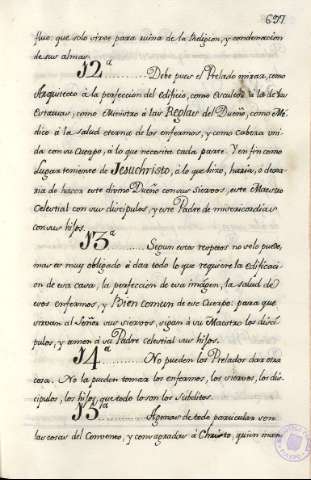 671
fluo: que solo sirve para ruina de la Religion, y condenacion
de sus almas.
12ª
Debe pues el Prelado mirar, como
Arquitecto à la perfección del edificio, como Escultòr à la de las
Estatuas, como Ministro à las Reglas del Dueño, como Me-
dico à la salud eterna de los enfermos, y como cabeza uni-
da con su Cuerpo, à lo que necesita cada parte. Y en fin como
lugarteniente de Jesuchristo, à lo que hizo, haria, ò desea-
ria de hacer este divino Dueño con sus siervos, este Maestro
Celestial con sus discipulos, y este Padre de misericordias
con sus hijos.
13ª
Segun estos respetos no solo puede,
mas es muy obligado à dar todo lo que requiere la edificaci-
on de esa casa, la perfeccion de esa imágen, la salud de
esos enfermos, y Bien comun de ese Cuerpo: para que
sirvan al Señor sus siervos, sigan à su Maestro los disci-
pulos, y amen à su Padre celestial sus hijos.
14ª
No pueden los Prelados dar otra
cosa. No la pueden tomar los enfermos, los siervos, los dis-
cipulos, los hijos, que todo lo son los subditos.
15ª
Agenas de todo particular son
las cosas del Convento, y consagradas à Christo, quien man-